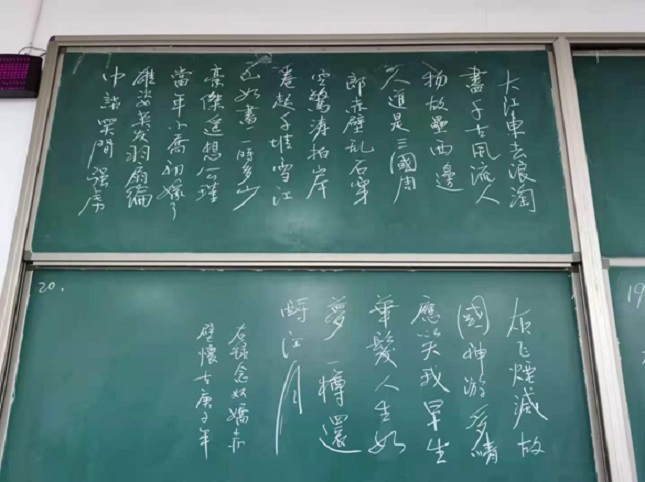 大江東去浪淘
盡千古風流人
物故壘西邊
人道是三國周
郎赤壁乱石穿
空驚涛拍岸
卷起千堆雪江
山如畫一時多少
豪傑遥想公瑾
當年小喬初嫁了
雄姿英发羽扇綸
巾談笑間强虜
20.
灰飞煙滅故
國神游多情
應笑我早生
華髮人生如
夢一樽還
酹江月
右録念奴嬌赤
壁懷古庚子年
19